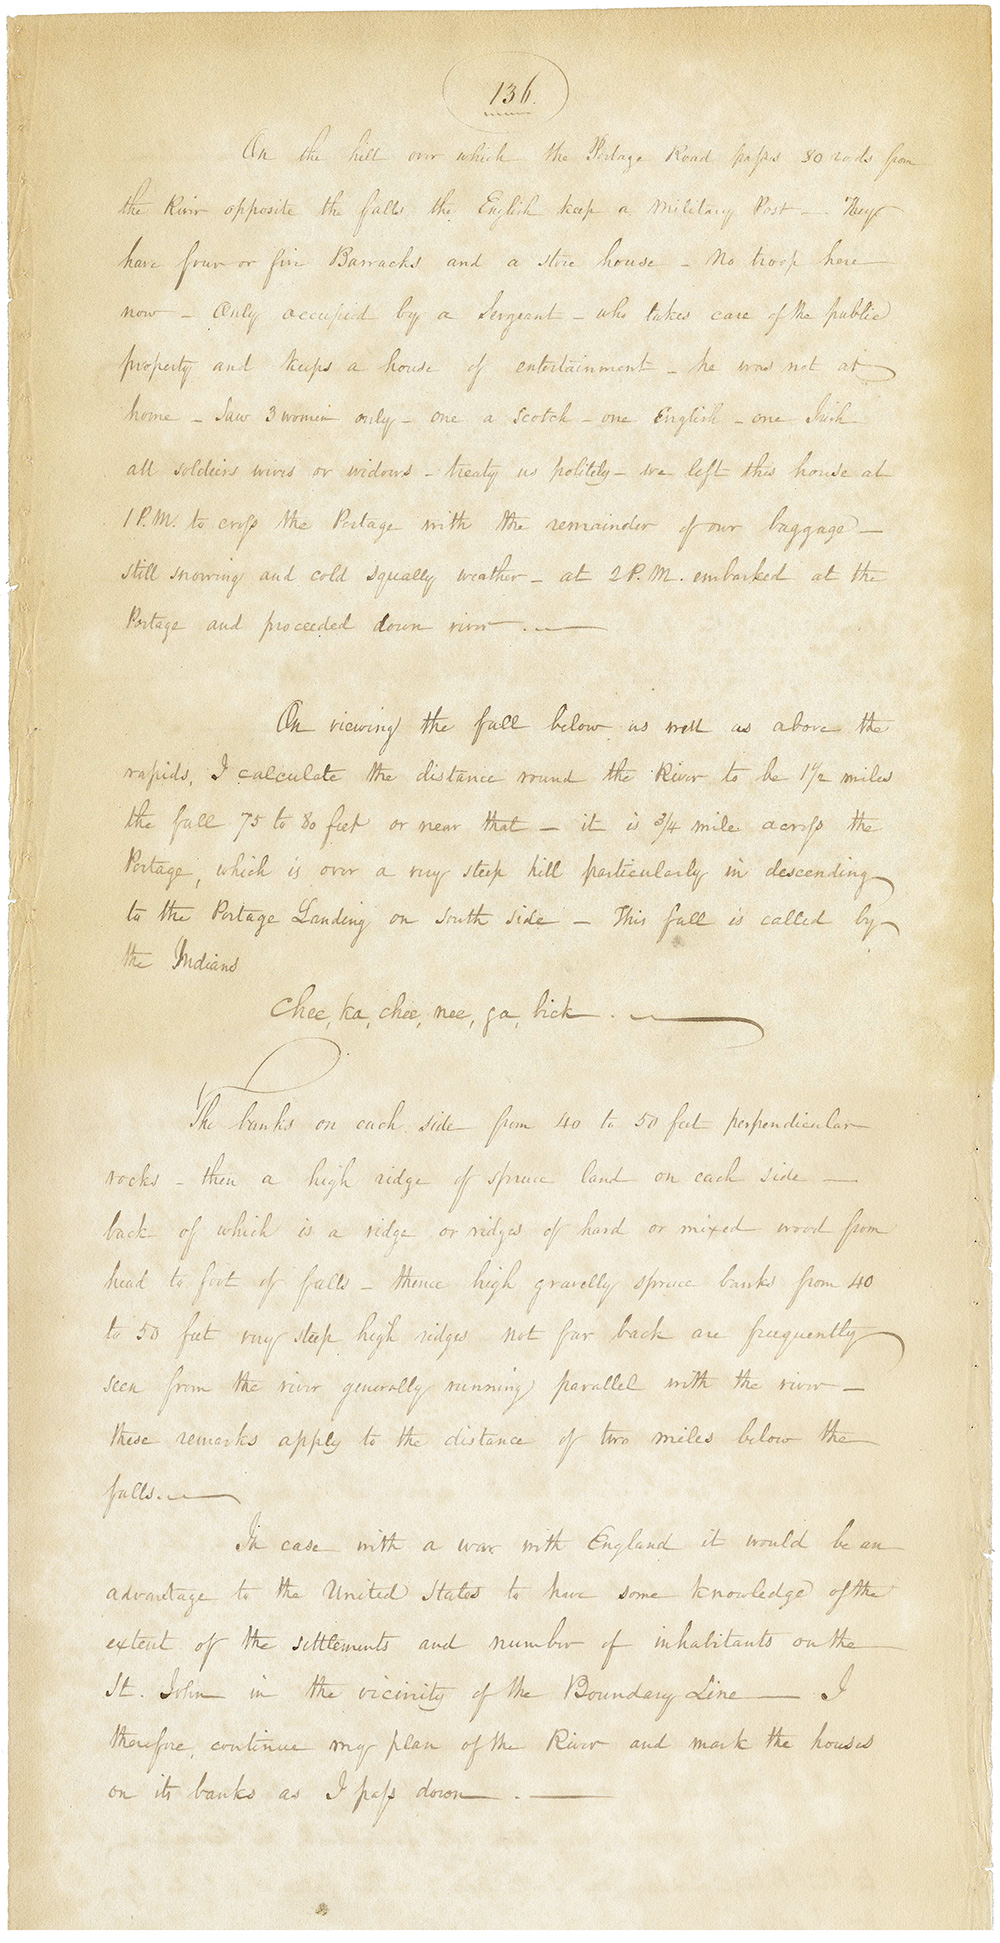 136.
On the hill over which the Portage Road passes 80 rods from
the River opposite the falls the English keep a Military Post - They
have four or five Barracks and a store house - No troop here
now - Only occupied by a Sergeant - who takes care of the public
property and keeps a house of entertainment - he was not at
home - Saw 3 women only - one a Scotch - one English - one Irish
all soldiers wives or widows - treaty us politely - we left this house at
1 P.M. to cross the Portage with the remainder of our baggage -
still snowing and cold squally weather - at 2 P.M. embarked at the
Portage and proceeded down river.
On viewing the fall below as well as above the
rapids, I calculate the distance round the River to be 1 1/2 miles
the fall 75 to 80 feet or near that - it is 3/4 mile across the
Portage, which is over a very steep hill particularly in descending
to the Portage Landing on south side - This fall is called by
the Indians
Chee, ka, chee, nee, ga, bick.
The banks on each side from 40 to 50 feet perpendicular
rocks - then a high ridge of spruce land on each side -
back of which is a ridge or ridges of hard or mixed wood from
head to foot of falls - thence high gravelly spruce banks from 40
to 50 feet very steep high ridges not far back are frequently
seen from the river generally running parallel with the river -
these remarks apply to the distance of two miles below the
falls.
In case with a war with England it would be an
advantage to the United States to have some knowledge of the
extent of the settlements and number of inhabitants on the
St. John in the vicinity of the Boundary Line - I
therefore, continue my plan of the River and mark the houses
on its banks as I pass down.